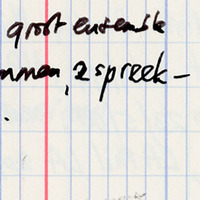 groot ensemble
mmen, 2 spreek-
.